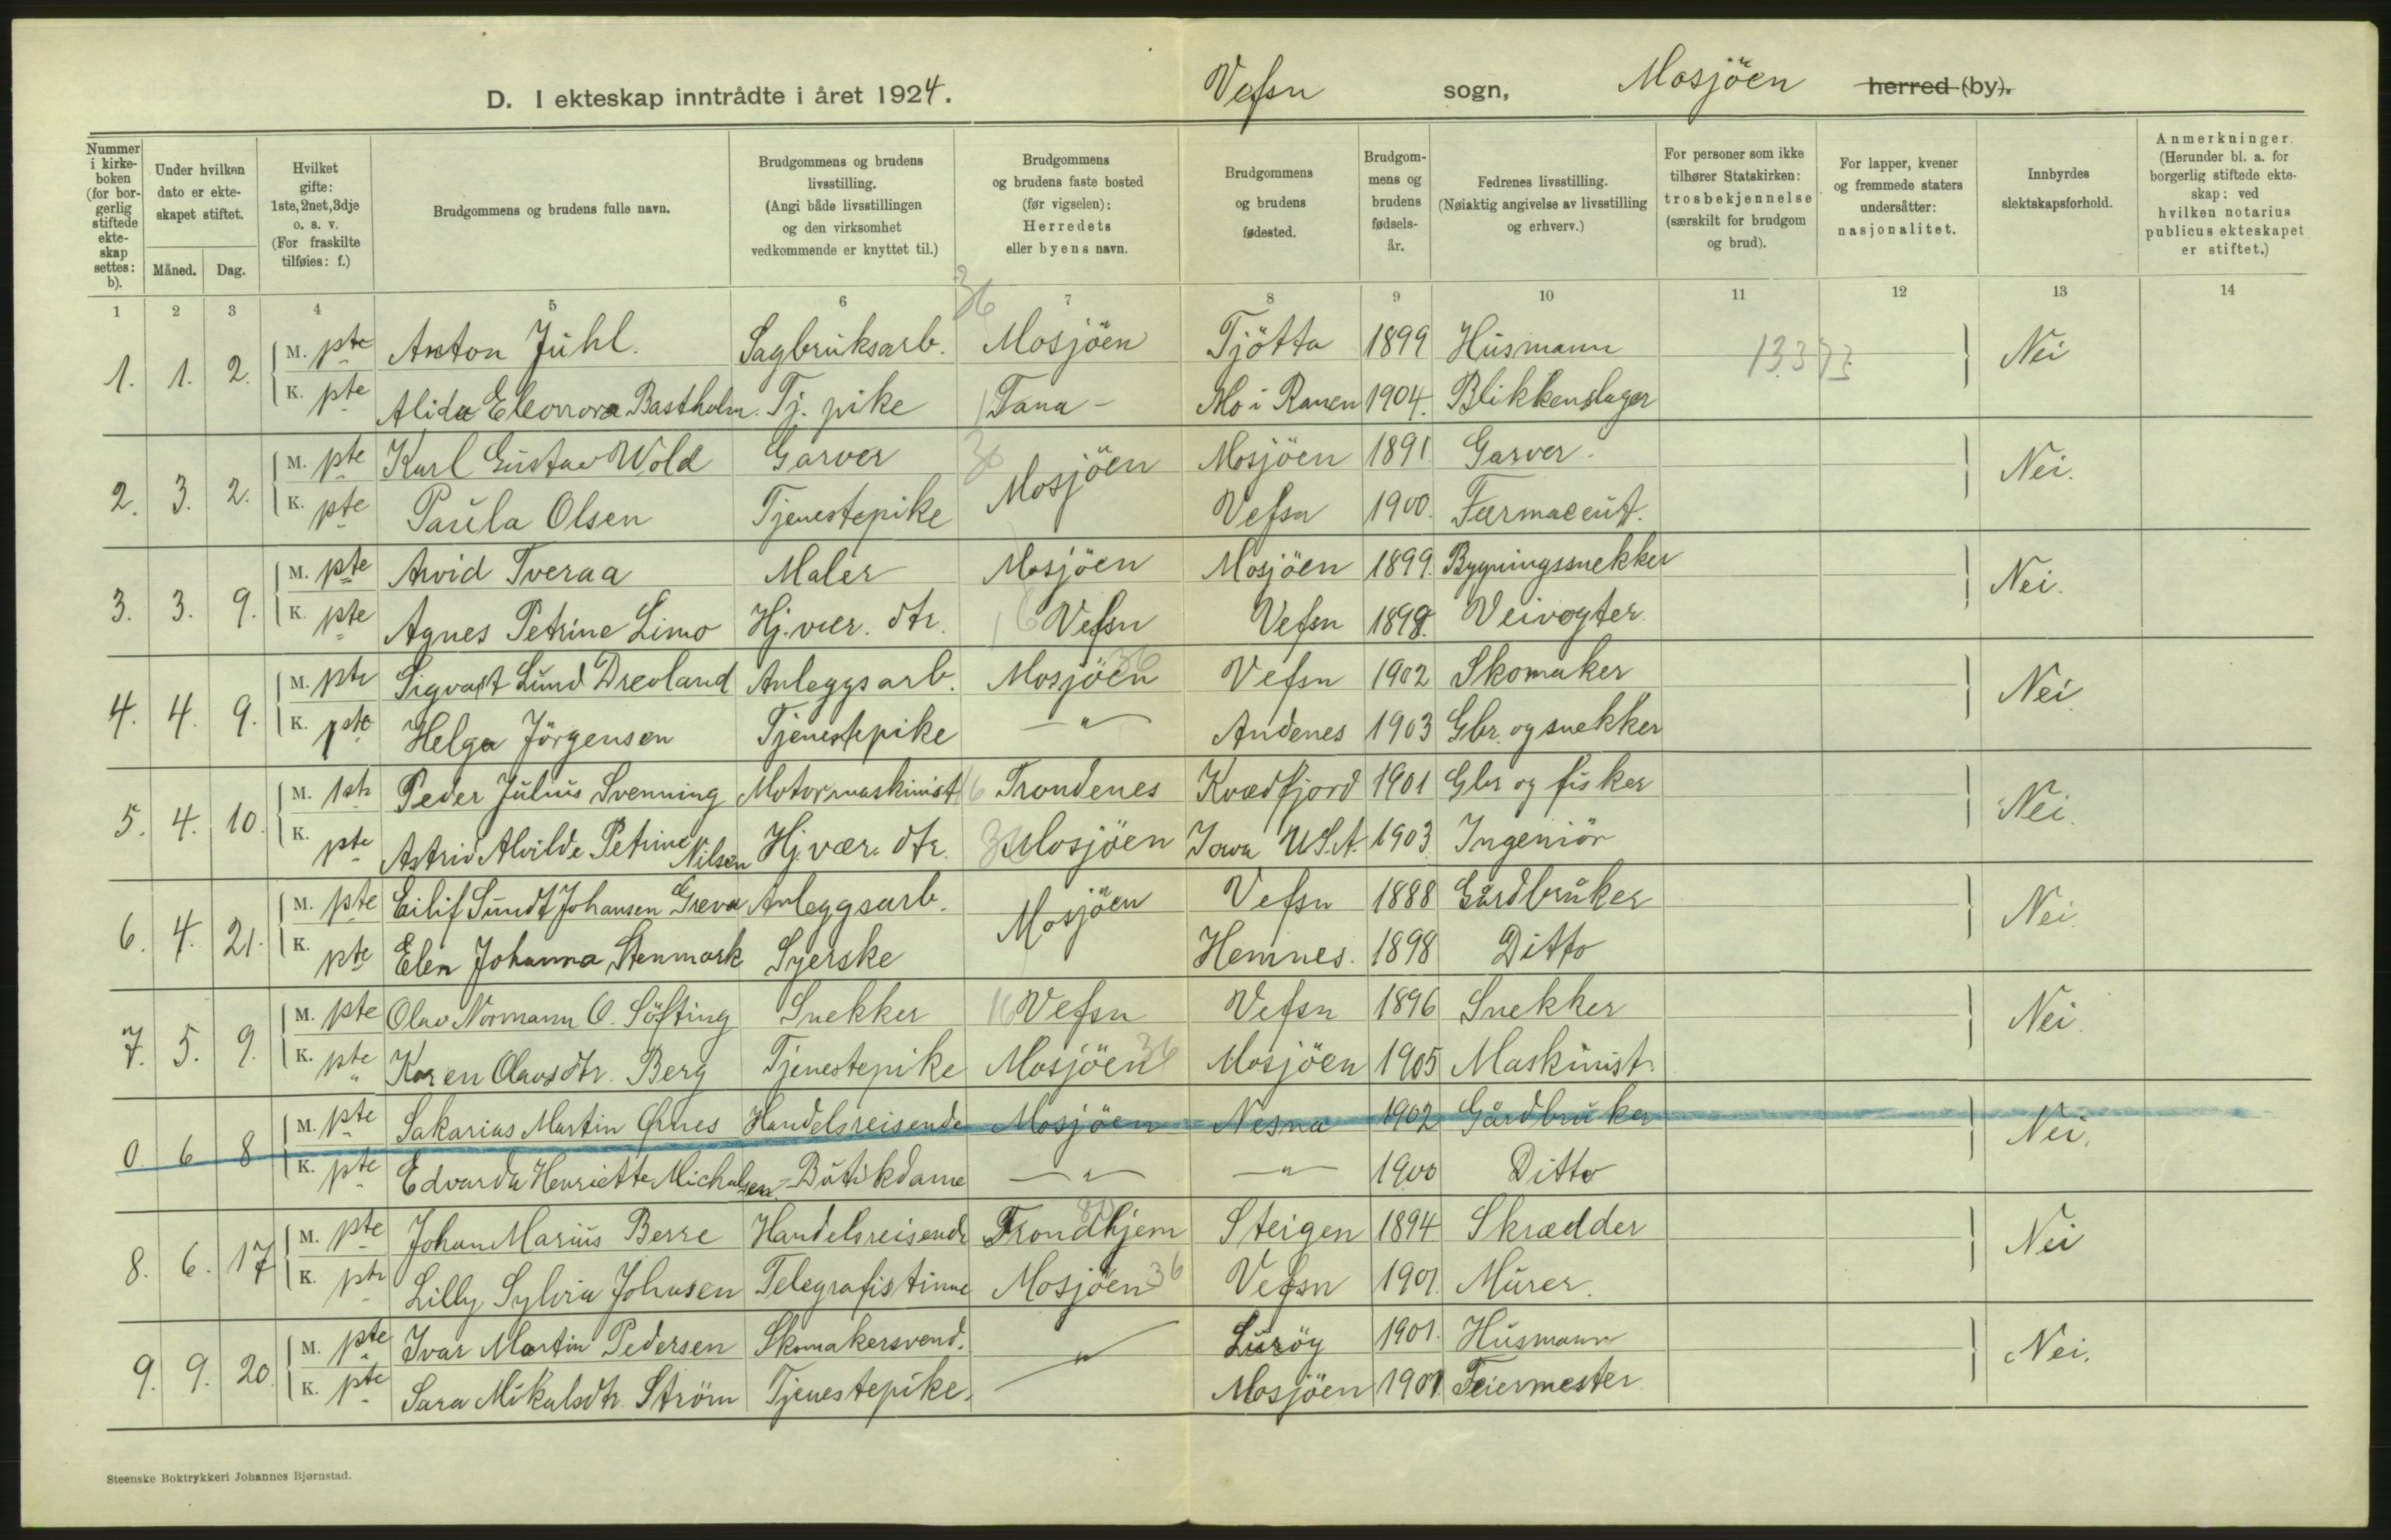 D. I ekteskap inntrådte i året 1924. Vefsn sogn, Mosjöen herred (by).
Nummer i kirkeboken (for borgerlig stiftede ekteskap settes: b).
Under hvilken dato er ekteskapet stiftet.
Måned. Dag.
Hvilket gifte: 1ste, 2net, 3dje o. s. v. (For fraskilte tilføies: f.)
Brudgommens og brudens fulle navn.
Brudgommens og brudens livsstilling. (Angi både livsstillingen og den virksomhet vedkommende er knyttet til.)
Brudgommens og brudens faste bosted (før vigselen): Herredets eller byens navn.
Brudgommens og brudens fødested.
Brudgommens og brudens fødselsår.
Fedrenes livsstilling. (Nøiaktig angivelse av livsstilling og erhverv.)
For personer som ikke tilhører Statskirken: trosbekjennelse (særskilt for brudgom og brud).
For lapper, kvener og fremmede staters undersåtter: nasjonalitet.
Innbyrdes slektskapsforhold.
Anmerkninger. (Herunder bl. a. for borgerlig stiftede ekteskap: ved hvilken notarius publicus ekteskapet er stiftet.)
1 2 3 4 5 6 7 8 9 10 11 12 13 14
1. 1. 2. M. pte Anton Juhl. Sagbruksarb. 36 Mosjöen Tjötta 1899 Husmann Nei
K. pte Alida Eleonora Bastholm. Tj. pike Tana - Mo i Ranen 1904. Blikkenslager
2. 3. 2. M. pte Karl Gustav Wold Garver 36 Mosjöen Mosjöen 1891 Garver. Nei.
K. pte Paula Olsen Tjenestepike Vefsn 1900. Farmaceut.
3. 3. 9. M. pte Arvid Tveraa Maler Mosjöen Mosjöen 1899. Bygningssnekker Nei.
K. pte Agnes Petrine Limo Hj. vær. dtr. Vefsn Vefsn 1898. Veivogter.
4. 4. 9. M. pte Sigvart Lund Drevland Anleggsarb. Mosjöen 36 Vefsn 1902 Skomaker Nei
K. pte Helga Jörgensen Tjenestepike — " — Andenes 1903 Gbr. og snekker
5. 4. 10. M. 1ste Peder Julius Svenning Motormaskinist 16 Trondenes Kvædfjord 1901 Gbr og fisker Nei.
K. pte Astrid Alvilde Petrine Nilsen Hj. vær. dtr. 36 Mosjöen Iowa U.S.A. 1903. Ingeniör
6. 4. 21. M. pte Eilif Sundt Johansen Greva Anleggsarb. Mosjöen Vefsn 1888 Gårdbruker Nei.
K. pte Elen Johanna Stenmark Syerske Hemnes. 1898 Ditto
7. 5. 9. M. pte Olav Normann O. Söfting Snekker 16 Vefsn Vefsn 1896 Snekker Nei.
K. pte Karen Olavsdtr. Berg Tjenestepike Mosjöen 36 Mosjöen 1905 Maskinist.
0 6 8 M. pte Sakarias Martin Örnes Handelsreisende Mosjöen Nesna 1902 Gårdbruker Nei.
K. pte Edvarda Henriette Michalsen Butikdame — " — — " — 1900 Ditto
8. 6. 17 M. pte Johan Marius Berre Handelsreisende Trondhjem Steigen 1894 Skrædder Nei
K. pte Lilly Sylvia Johnsen Telegrafistinne Mosjöen 36 Vefsn 1901. Murer.
9. 9. 20. M. pte Ivar Martin Pedersen Skomakersvend. — " — Luröy 1901. Husmann Nei.
K. pte Sara Mikalsdtr. Ström Tjenestepike. Mosjöen 1901 Feiermester
Steenske Boktrykkeri Johannes Bjørnstad.